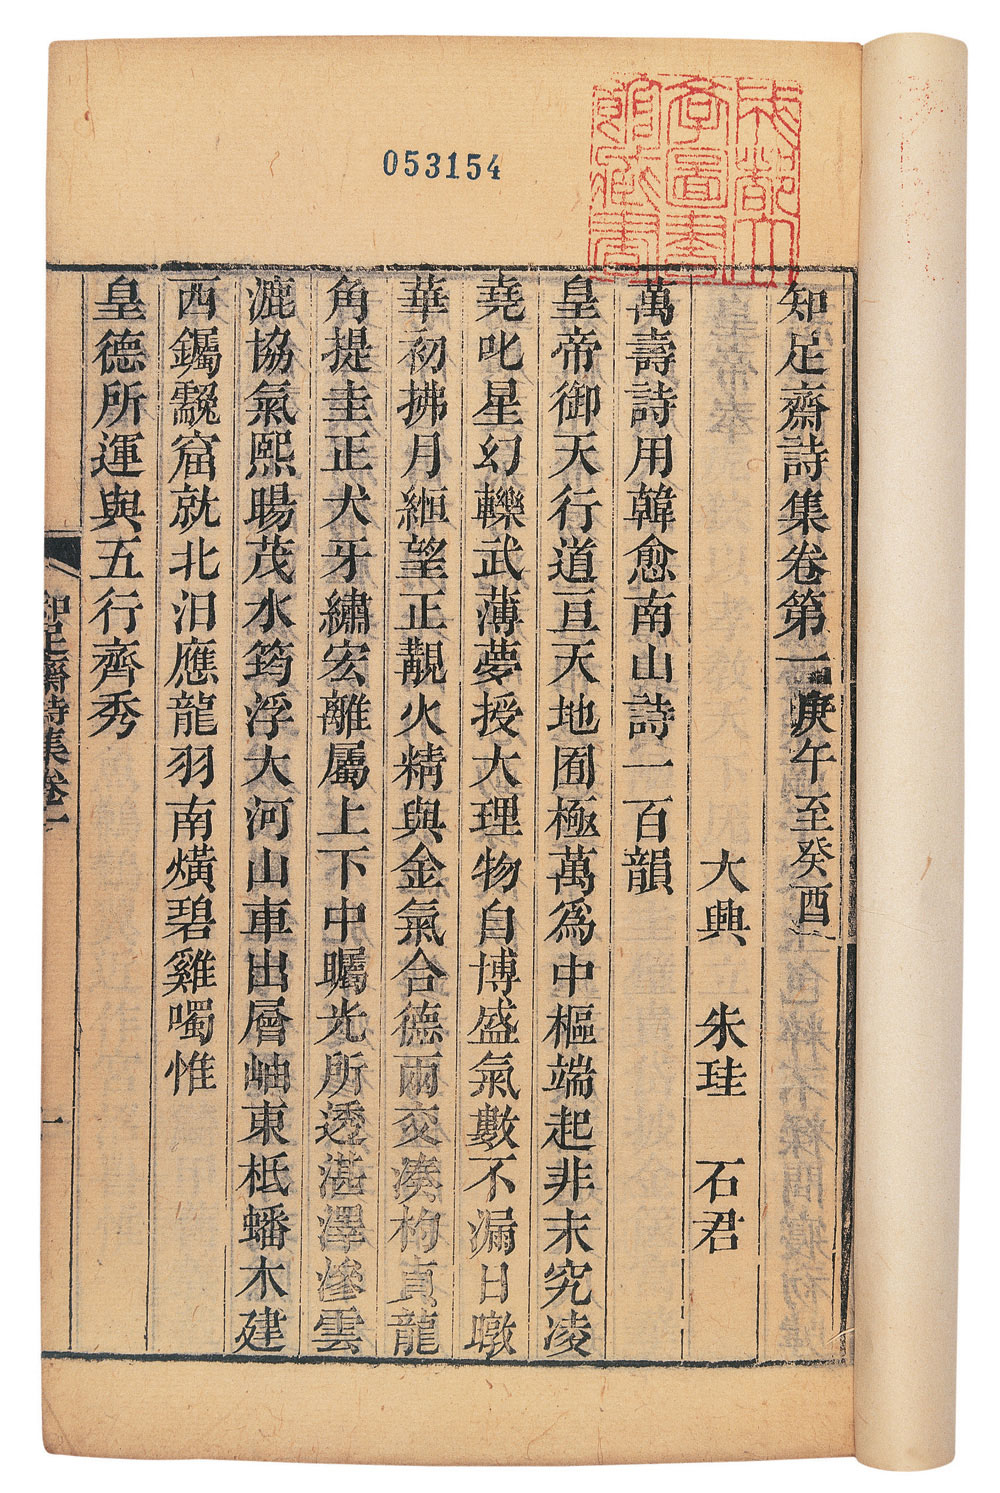 053154
成都大學圖書館藏書
知足齋詩集卷第一庚午至癸酉
大興 朱珪 石君
萬壽詩用韓愈南山詩一百韻
皇帝御天行道亘天地囿極萬為中樞端起非末究凌
堯叱星幻轢武薄夢授大理物自博盛氣數不漏日暾
華初拂月緪望正覯火精與金氣合德兩交湊枸真龍
角提圭正犬牙繡宏離屬上下中矚光所透湛澤滲雲
漉協氣熙暘茂水筠浮大河山車出層岫東柢蟠木建
西钃䨲窟就北汨應龍羽南熿碧雞噣惟
皇德所運與五行齊秀
知足齋詩集卷一
一